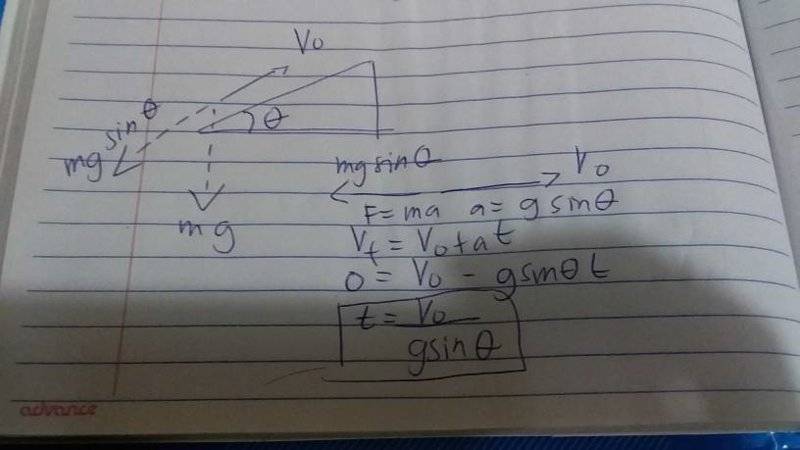 V₀
θ
mg sin θ
mg
mg sin θ V₀
F = ma a = g sin θ
V_f = V₀ + at
0 = V₀ - g sin θ t
t = V₀
g sin θ
advance